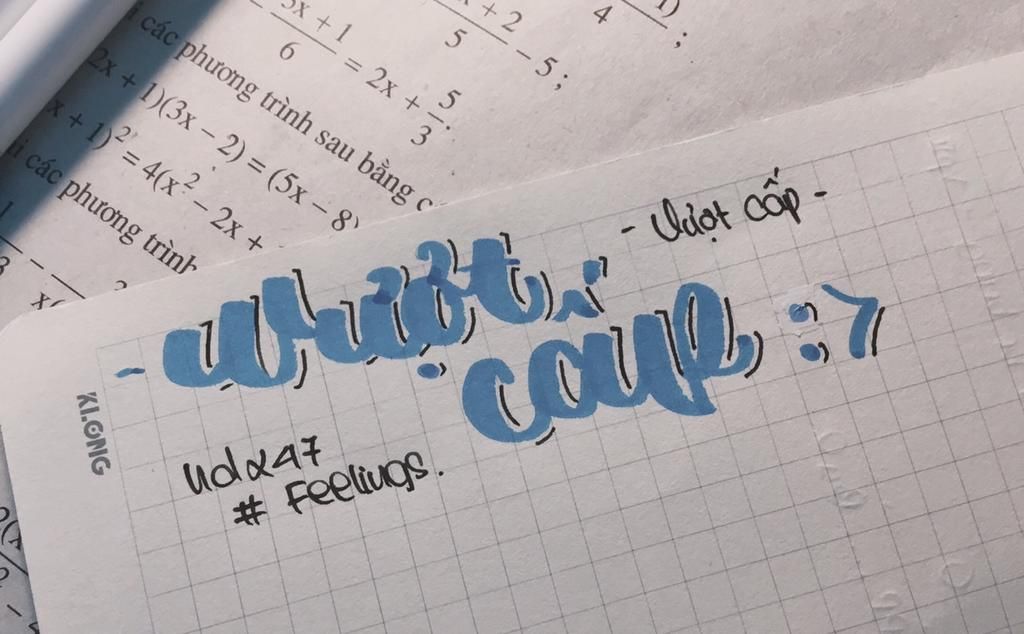 5x + 1
6
= 2x +
5
3
.
x + 2
5
- 5 ;
4
;
i các phương trình sau bằng c
2x + 1)(3x - 2) = (5x - 8)
x + 1)² = 4(x² - 2x +
i các phương trình
- Vượt cấp -
- Vượt
coup :>
KLONG
# Feelings.